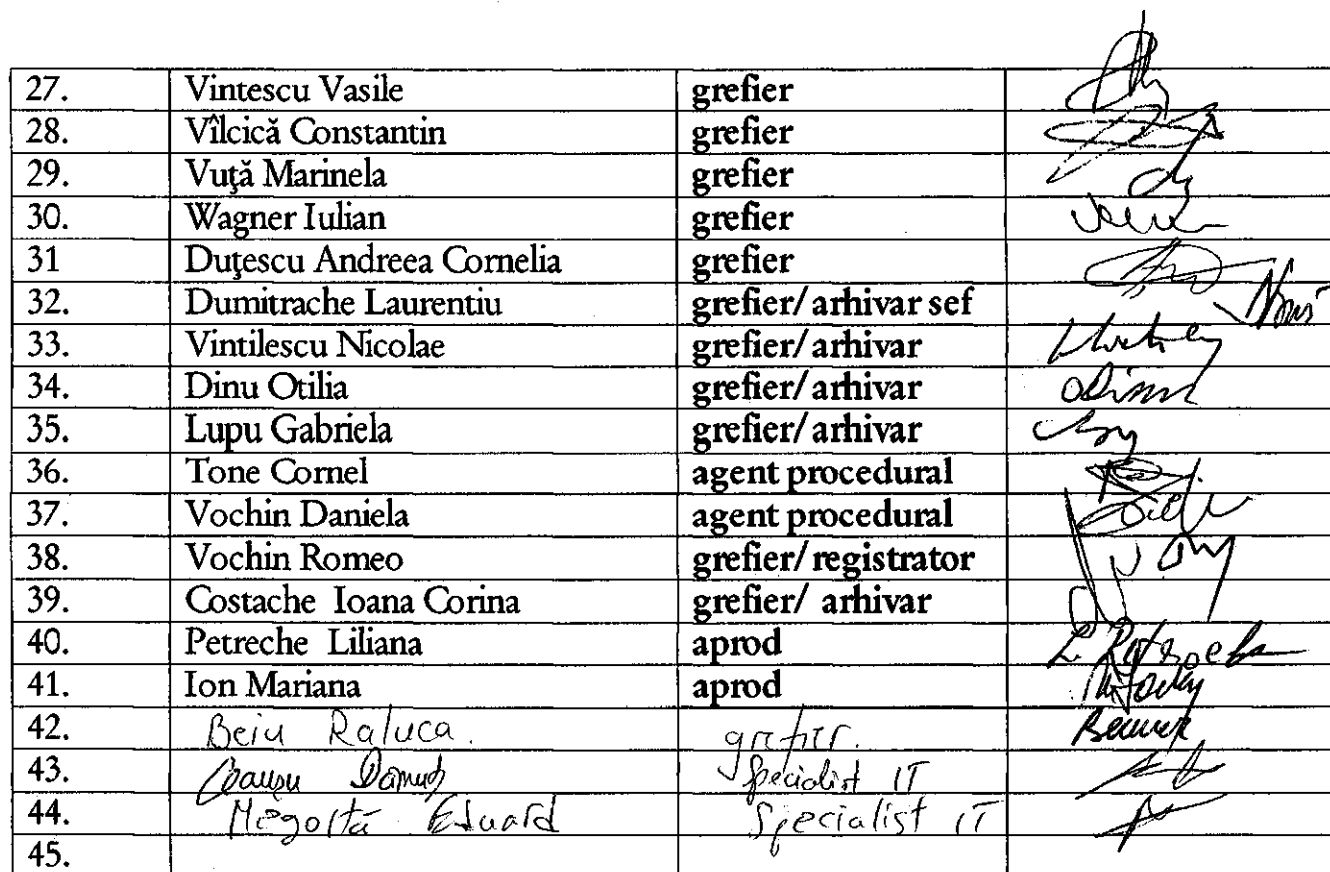 27. Vintescu Vasile grefier
28. Vîlcică Constantin grefier
29. Vuţă Marinela grefier
30. Wagner Iulian grefier
31 Duţescu Andreea Cornelia grefier
32. Dumitrache Laurentiu grefier/ arhivar sef
33. Vintilescu Nicolae grefier/ arhivar
34. Dinu Otilia grefier/ arhivar
35. Lupu Gabriela grefier/ arhivar
36. Tone Cornel agent procedural
37. Vochin Daniela agent procedural
38. Vochin Romeo grefier/ registrator
39. Costache Ioana Corina grefier/ arhivar
40. Petreche Liliana aprod
41. Ion Mariana aprod
42. Beiu Raluca. grefier.
43. Specialist IT
44. Eduard Specialist IT
45.